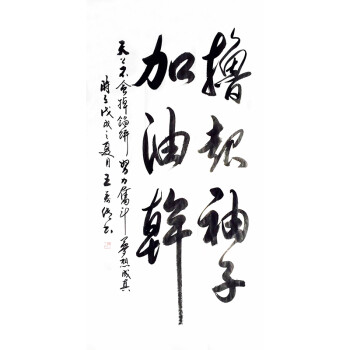 撸起袖子
加油幹
天上不会掉馅饼 努力奋斗 夢想成真
时在戊戌之夏月 王